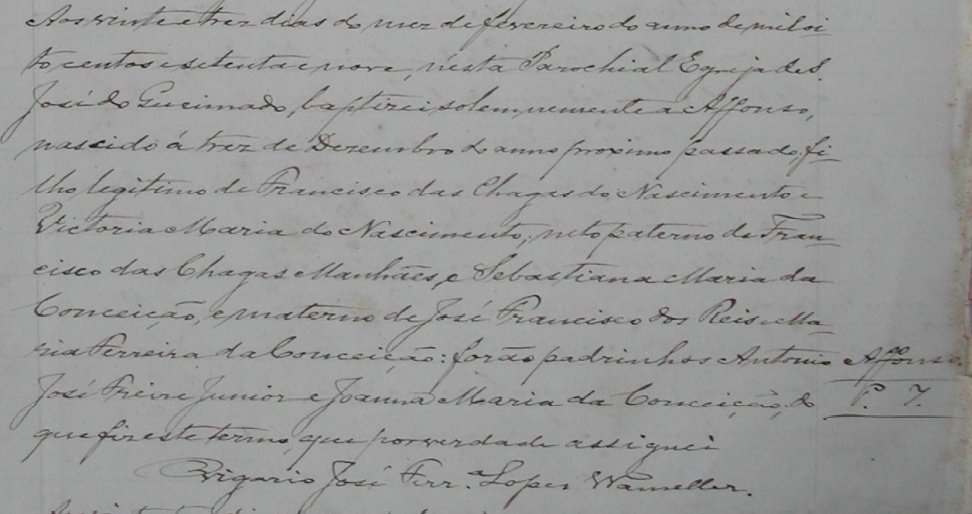 Aos vinte e trez dias do mez de fevereiro do anno de mil oi
to centos e setenta e nove, n'esta Parochial Egreja de S.
José do Queimado, baptizei solemnemente a Affonso,
nascido á trez de Dezembro do anno proximo passado, fi-
lho legitimo de Francisco das Chagas do Nascimento e
Victoria Maria do Nascimento, neto paterno de Fran-
cisco das Chagas Manhães, e Sebastiana Maria da
Conceição, e materno de José Francisco dos Reis e Ma-
ria Ferreira da Conceição: forão padrinhos Antonio
José Freire Junior e Joanna Maria da Conceição, do
que fiz este termo, que por verdade assignei
Vigario José Ferr.ª Lopes Wameller.
Affonso.
P. 7.